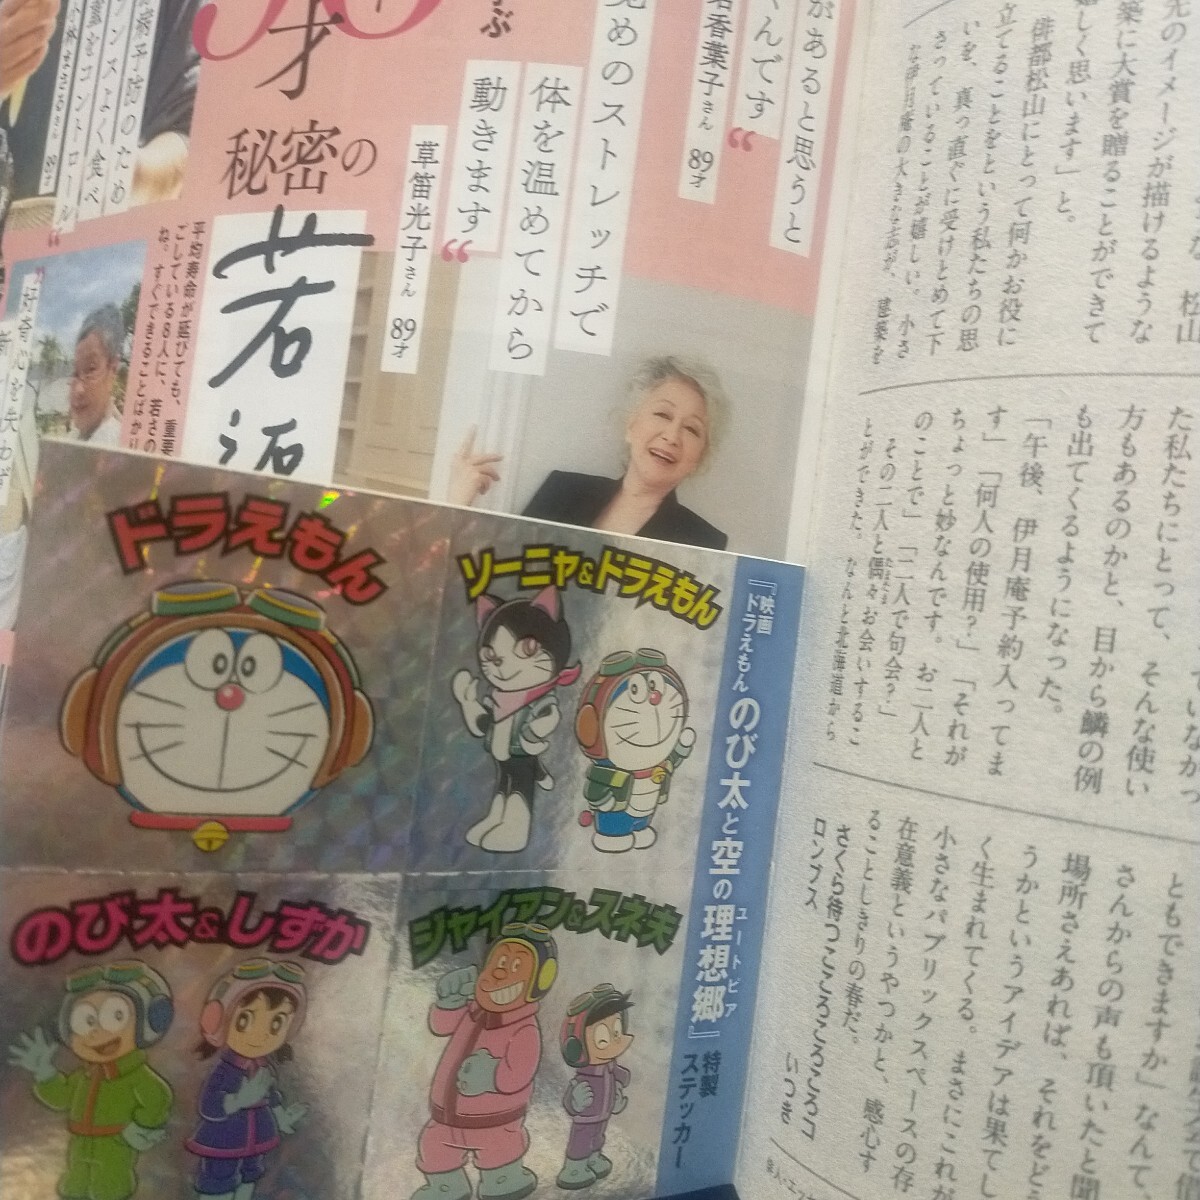 があると思うと
んです
香葉子さん 89才
覚めのストレッチで
体を温めてから
動きます
草笛光子さん 89才
才
秘密の
若返
平均寿命が延びても、重要
ごしている8人に、若さの
ね。すぐできることばかり
病予防のため
ンスよく食べ
をコントロール
まさるさん 89才
好奇心を失わず
先のイメージが描けるような
築に大賞を贈ることができて
嬉しく思います」と。
俳都松山にとって何かお役に
立てることをという私たちの思
いを、真っ直ぐに受けとめて下
さっていることが嬉しい。小さ
な伊月庵の大きな志が、建築を
た私たちにとって、そんな使い
方もあるのかと、目から鱗の例
も出てくるようになった。
「午後、伊月庵予約入ってま
す」「何人の使用?」「それが
ちょっと妙なんです。お二人と
のことで」「二人で句会?」
その二人と偶々お会いするこ
とができた。なんと北海道から
ともできますか」なんて
さんからの声も頂いたと聞
場所さえあれば、それをど
うかというアイデアは果てし
く生まれてくる。まさにこれが
小さなパブリックスペースの存
在意義というやつかと、感心す
ることしきりの春だ。
さくら待つこころころころコ
ロンブス いつき
『映画
ドラえもん のび太と空の理想郷』
ユートピア
特製
ステッカー
ドラえもん
ソーニャ&ドラえもん
のび太&しずか
ジャイアン&スネ夫